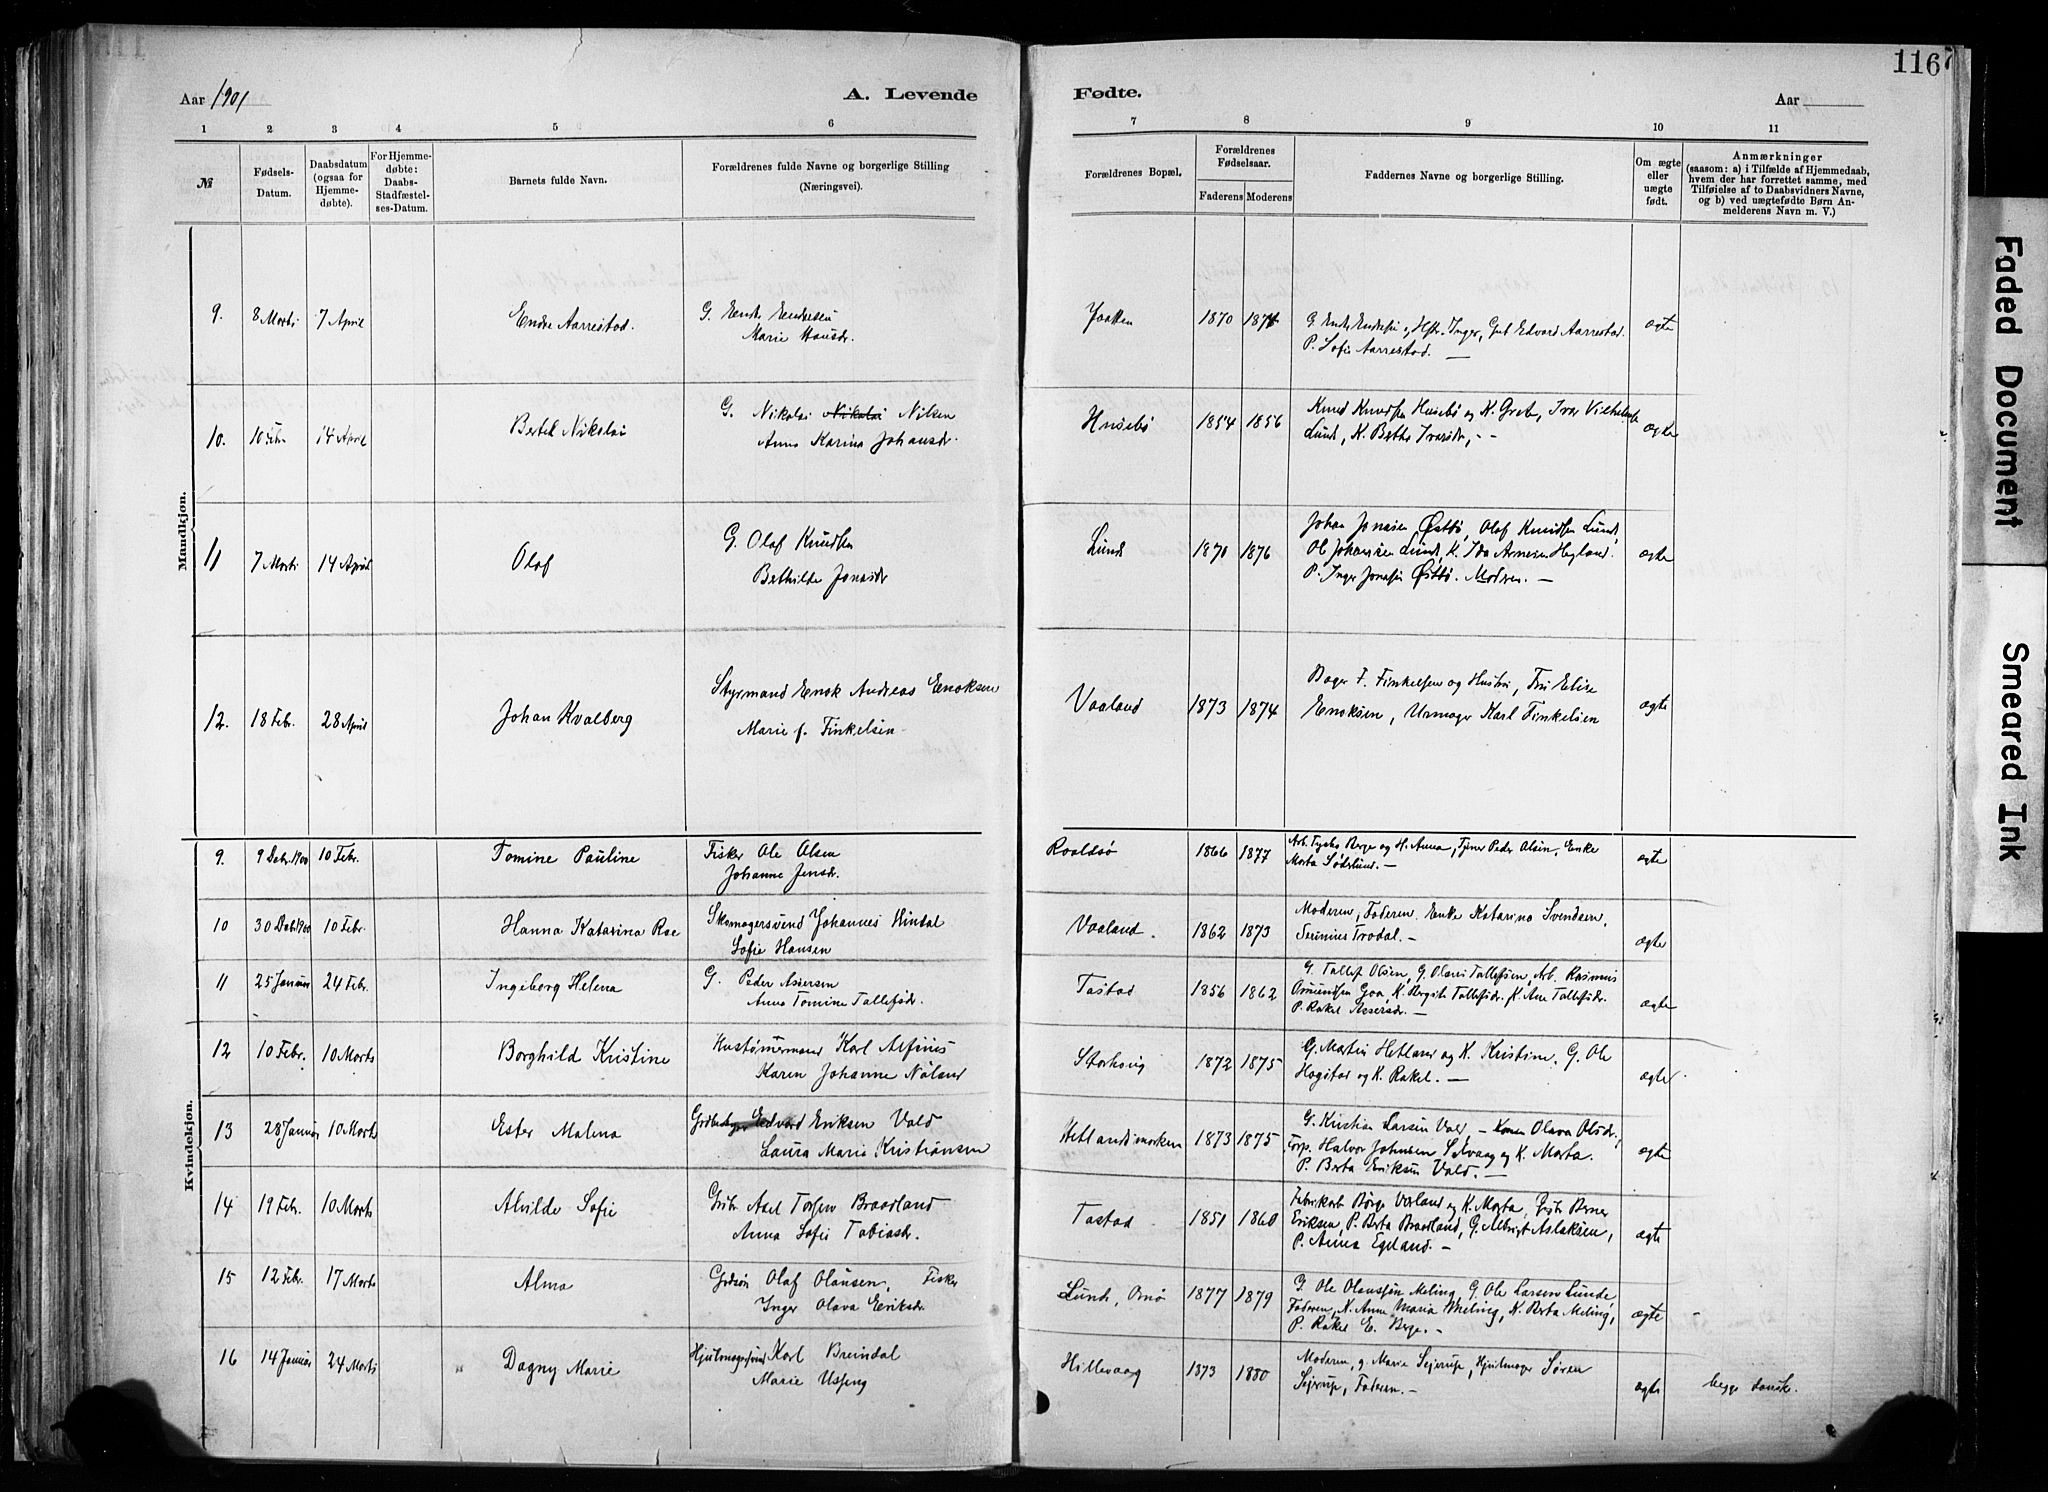 116
Aar 1901
A. Levende Fødte.
Aar
1 2 3 4 5 6 7 8 9 10 11
№
Fødsels-Datum.
Daabsdatum (ogsaa for Hjemmedøbte).
For Hjemmedøbte: Daabs-Stadfæstelses-Datum.
Barnets fulde Navn.
Forældrenes fulde Navne og borgerlige Stilling (Næringsvei).
Forældrenes Bopæl.
Forældrenes Fødselsaar.
Faderens Moderens
Faddernes Navne og borgerlige Stilling.
Om ægte eller uægte født.
Anmærkninger
(saasom: a) i Tilfælde af Hjemmedaab, hvem der har forrettet samme, med Tilføielse af to Daabsvidners Navne, og b) ved uægtefødte Børn Anmelderens Navn m. V.)
Mandkjøn.
9. 8 Marts 7 April Endre Aarrestad. G. Endre Endresen
Marie Hansdr.
1870 1874 G. Endre Endresen og Hstr. Inger, Gut Edvard Aarrestad.
P. Sofie Aarrestad. —
ægte
10. 10 Febr. 14 April Bertel Nikolai G. Nikolai Nikolai Nilsen
Anne Karina Johansdr.
Husebø 1854 1856 Knud Knudsen Husebø og K. Grete, Ivar Vilhelm
Lund, K. Berthe Ivarsdr, - -
ægte
11 7 Marts 14 April Olaf G. Olaf Knudsen
Bethilde Jonasdr
Lunde 1870 1876 Johan Jonasen Østbø, Olaf Knudsen Lunde,
Ole Johannesen Lunde, K. Ida Arnesen Høyland.
P. Inger Jonasen Østbø. Moderen. —
ægte
12. 18 Febr. 28 April Johan Kvalberg Styrmand Enok Andreas Enoksen
Marie f. Finkelsen
Vaaland 1873 1874 Bager F. Finkelsen og Hustru, Fru Elise
Enoksen, Urmager Karl Finkelsen
ægte
Kvindekjøn.
9. 9 Debr. 1900 10 Febr. Tomine Pauline Fisker Ole Olsen
Johanne Jensdr.
Roaldsø 1866 1877 Arb. Tycho Berge og H. Anna, Tjener Peder Olsen, Enke
Marta Søderlund. —
ægte
10 30 Debr. 1900 10 Febr. Hanna Katarina Roe Skomagersvend Johannes Hindal
Sofie Hansen
Vaaland. 1862 1873 Moderen, Faderen. Enke Katarina Svendsen,
Serinius Trodal. —
ægte
11 25 Januar 24 Febr. Ingeborg Helena G. Peder Assersen
Anne Tomine Tallefsdr.
Tastad 1856 1862 G. Tallef Olsen, G. Olaves Tallefsen, Arb. Rasmus
Osmundsen Goa, K. Bergite Tallefsdr. K. Ane Tallefsdr.
P. Rakel Assersdr. —
ægte
12 10 Febr. 10 Marts Borghild Kristine Hustømmermand Karl Alfinus
Karen Johanne Nøland
Storhaug 1872 1875 G. Martin Hetland og K. Kristine. G. Ole
Hogstad og K. Rakel. —
ægte
13 28 Januar 10 Marts Ester Malena Edvard Eriksen Vald
Laura Marie Kristiansen
Hetlandsmarken 1873 1875 G. Kristian Larsen Vald - Konen Olava Olsdr.
Torp. Halvor Johnsen Selvaag og K. Marta.
P. Berta Eriksen Vald. —
ægte
14 19 Febr. 10 Marts Alvilde Sofie Gbr. Axel Torsen Braadland
Anna Sofie Tobiasdr.
Tastad 1851 1860 Fabrikarb. Børge Vaaland og K. Marta, Gbr. Berner
Eriksen, P. Berta Braadland, G. Albrigt Aslaksen,
P. Anna Egeland. —
ægte
15 12 Febr. 17 Marts Alma Grdsøn Olaf Olausen, Fisker
Inger Olava Eriksdr
Lunde, Omø 1877 1879 G. Ole Olaussen Meling, G. Ole Larsen Lunde
Faderen, K. Anne Maria Meling, K. Berta Meling,
P. Rakel E. Berge. —
ægte
16 14 Januar 24 Marts Dagny Marie Hjulmagersvend Karl Breindal
Marie
Hillevaag 1873 1880 Moderen, g. Marie Sejerup, Hjulmager Søren
Sejerup, Faderen. —
ægte begge dansk.
Faded Document
Smeared Ink